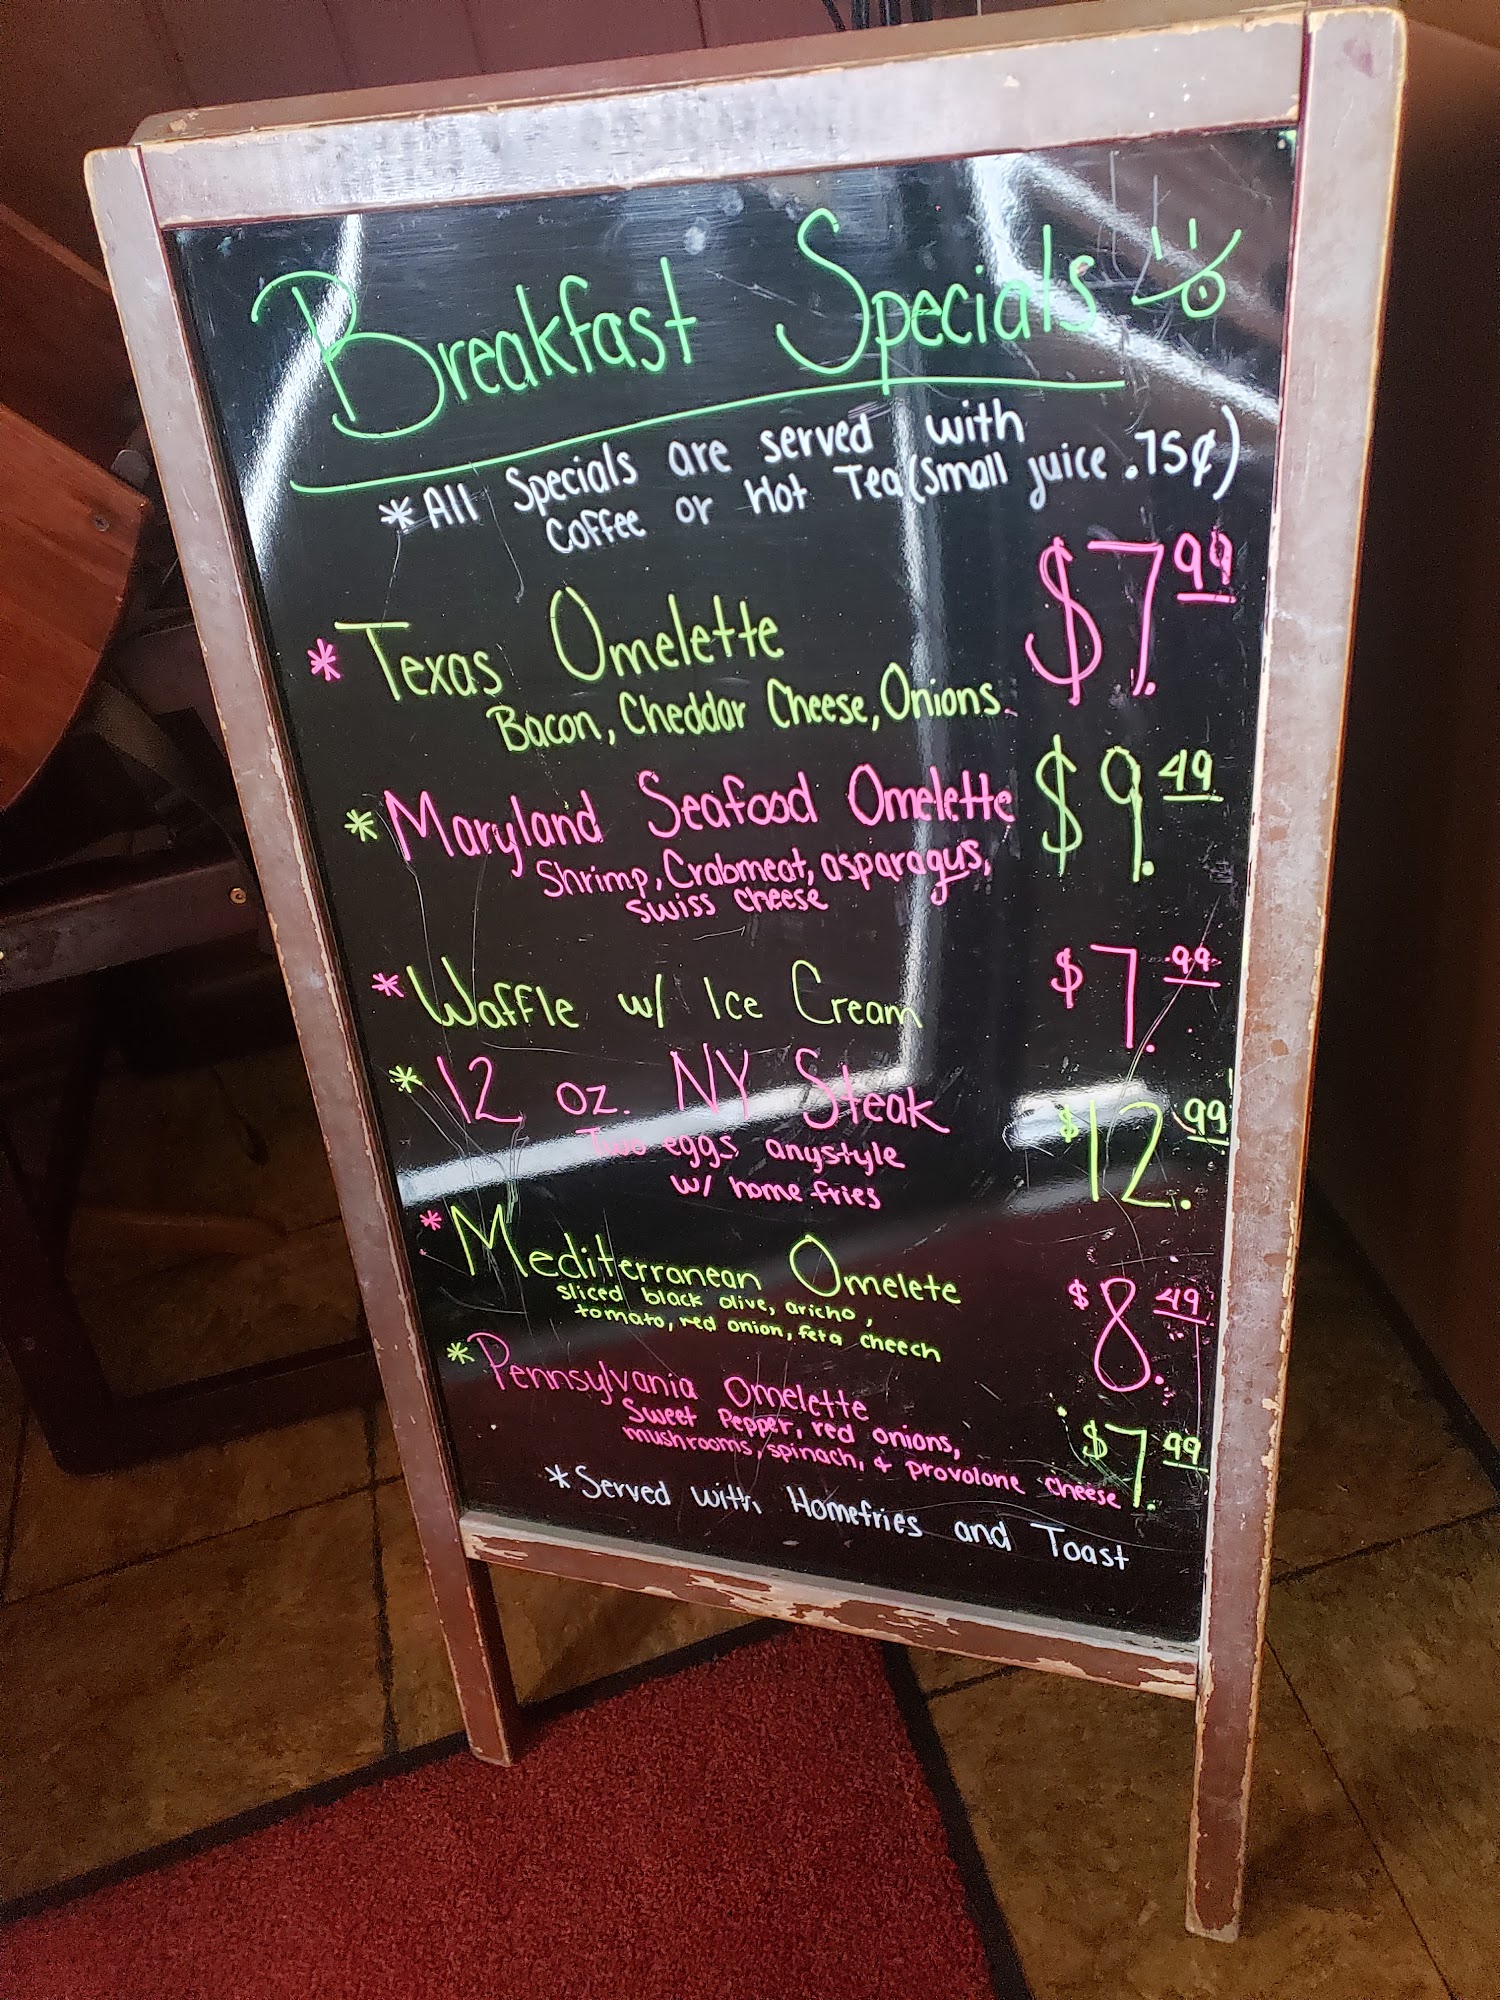 Breakfast Specials
*All Specials are served with
Coffee or Hot Tea (small juice .75¢)
*Texas Omelette $7.99
Bacon, Cheddar Cheese, Onions
*Maryland Seafood Omelette $9.49
Shrimp, Crabmeat, asparagus,
swiss cheese
*Waffle w/ Ice Cream $7.99
*12 oz. NY Steak $12.99
Two eggs anystyle
w/ home fries
*Mediterranean Omelete $8.49
sliced black olive, aricho,
tomato, red onion, feta cheech
*Pennsylvania Omelette $7.99
Sweet Pepper, red onions,
mushrooms, spinach, & provolone cheese
*Served with Homefries and Toast